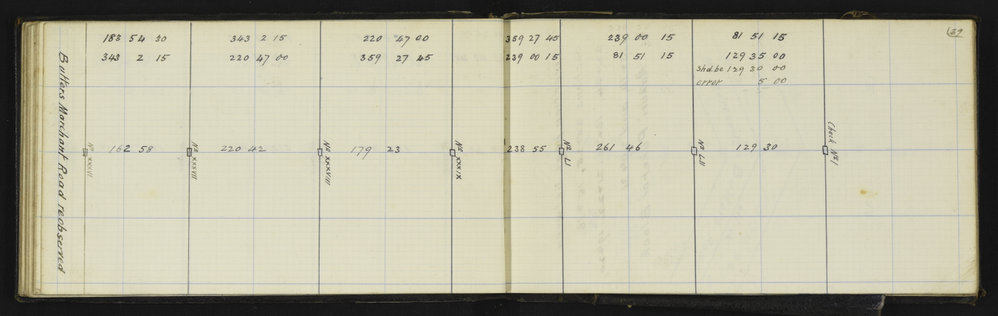 37
183 54 30
343 2 15
220 47 00
359 27 45
239 00 15
81 51 15
343 2 15
220 47 00
359 27 45
239 00 15
81 51 15
129 35 00
Shd be 129 30 00
error 5 00
162 58
220 42
179 23
238 55
261 46
129 30
Butters Marchant Road reobserved
No XXXIII
No XXVIII
No XXXVIII
No XXXIX
No LI
No LII
Check No 1